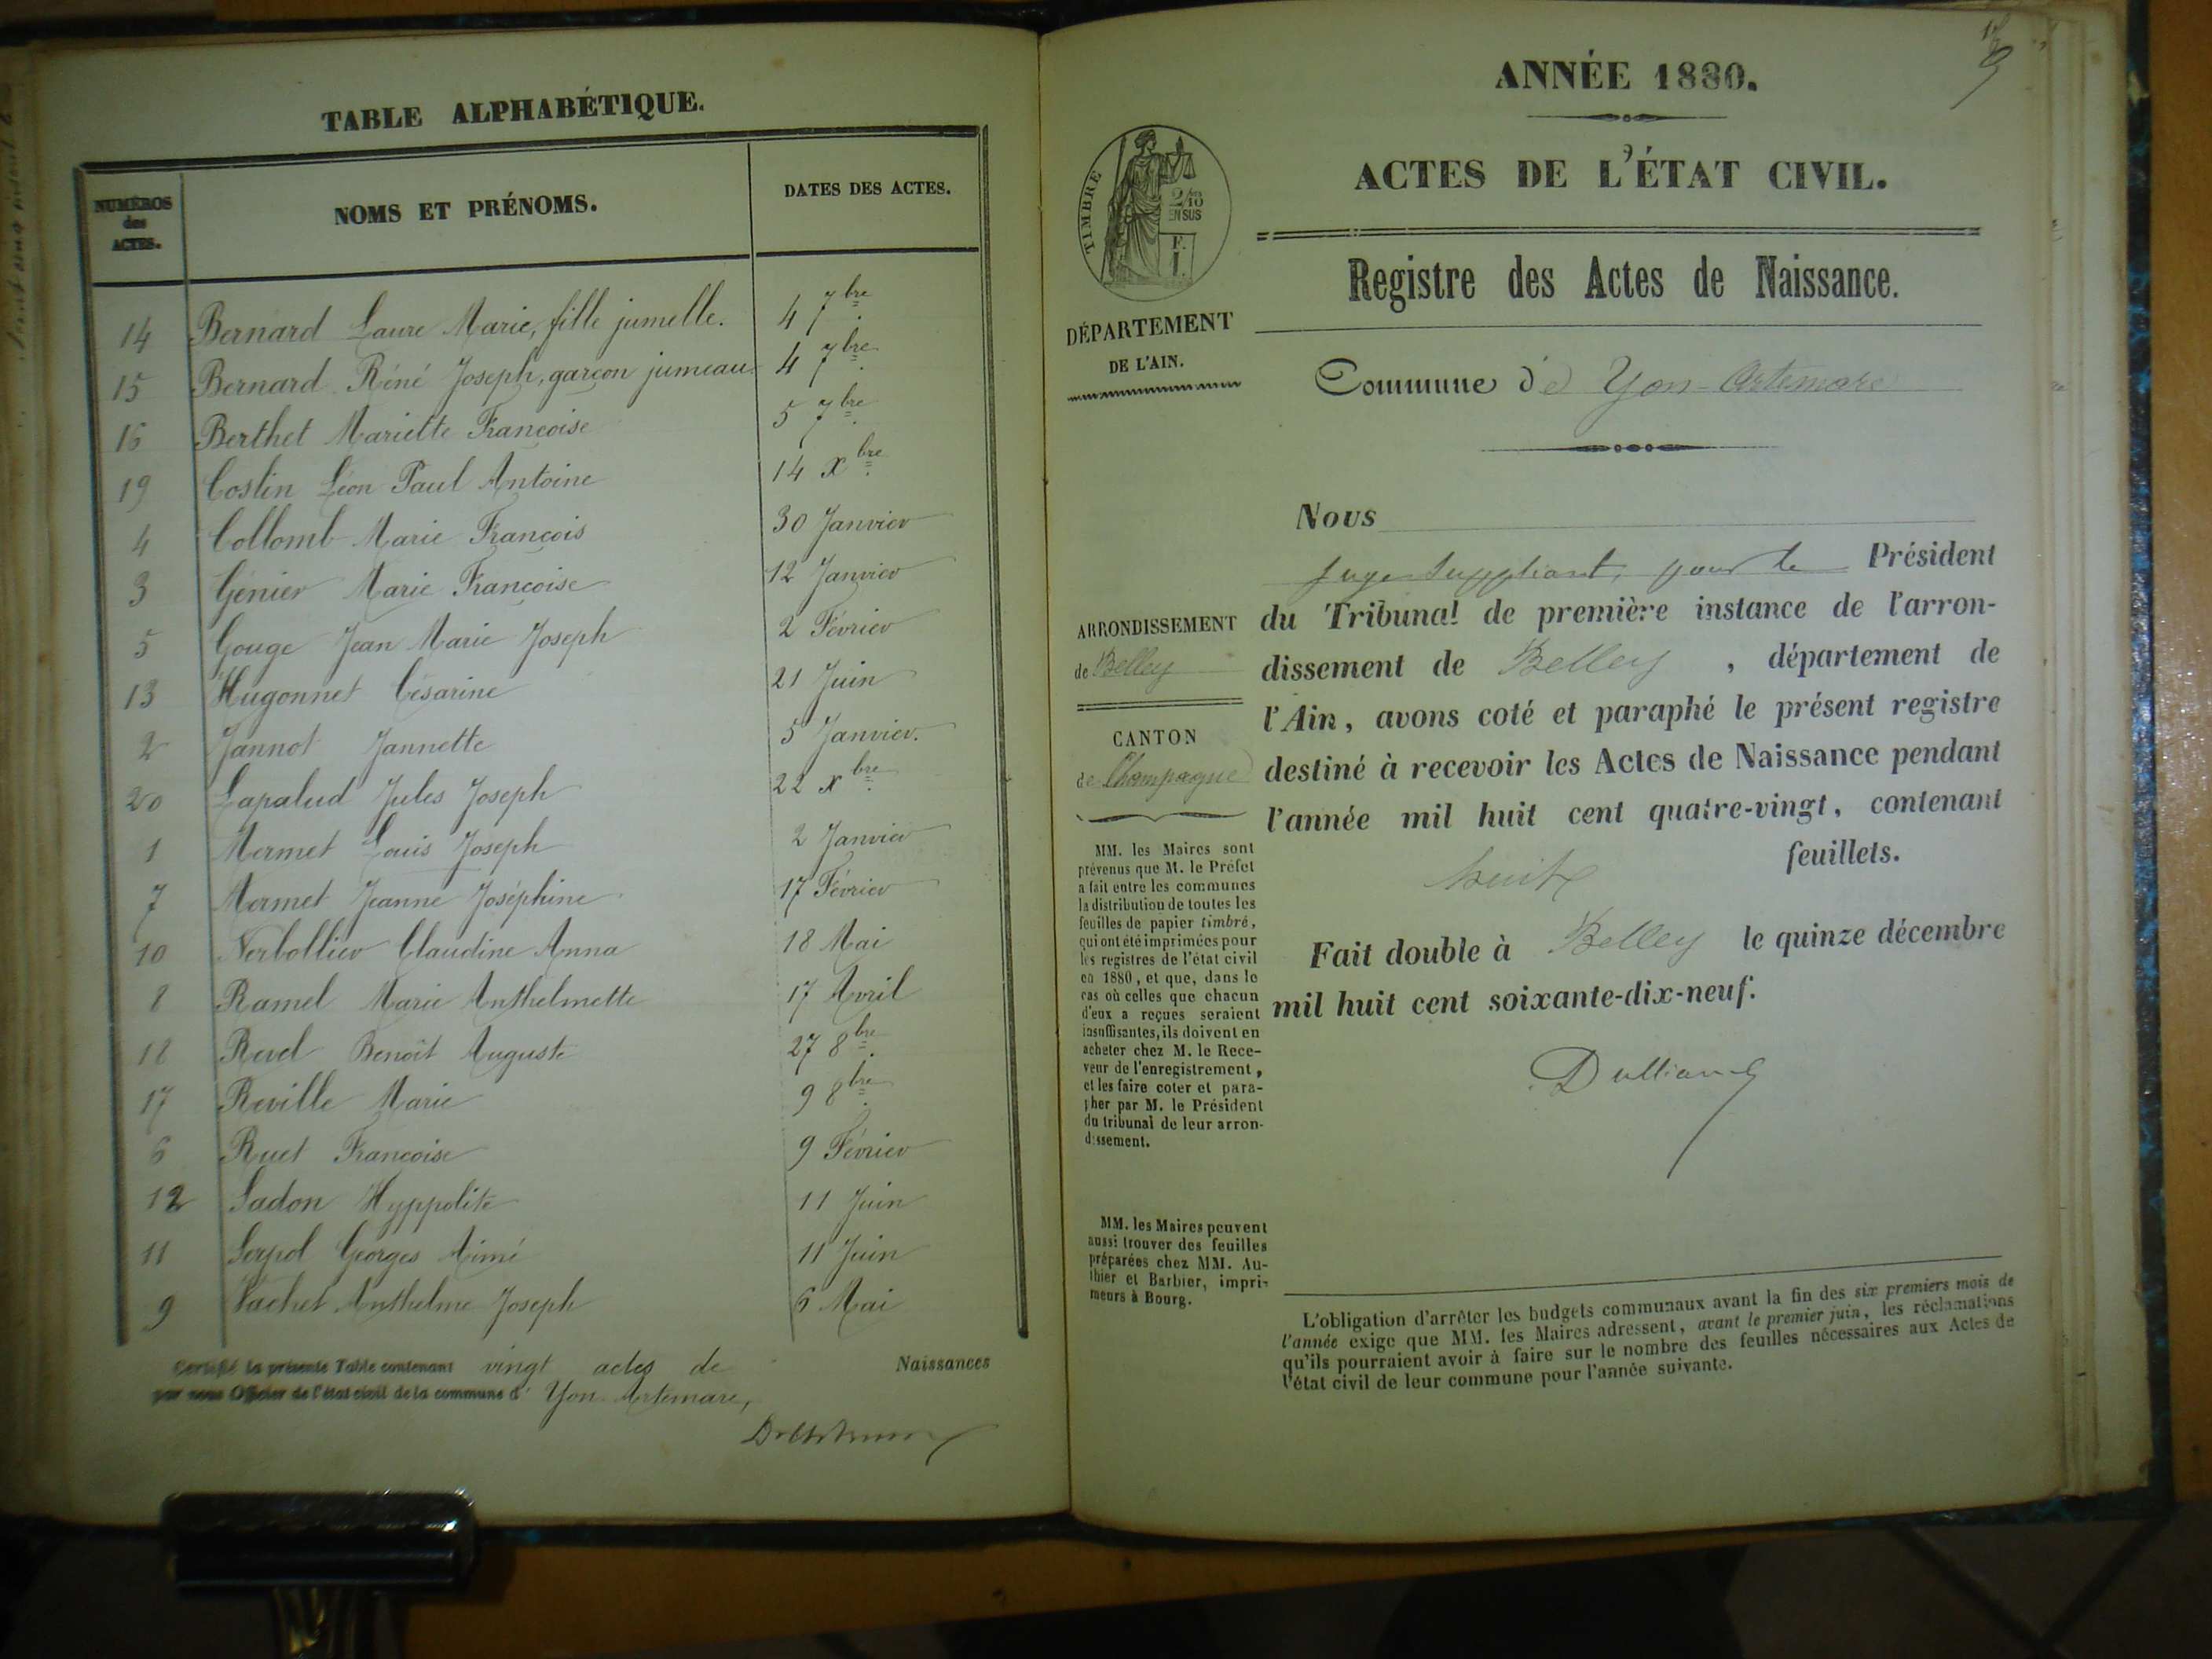 TABLE ALPHABÉTIQUE.
NUMÉROS des ACTES.
NOMS ET PRÉNOMS.
DATES DES ACTES.
14 Bernard Laure Marie, fille jumelle. 4 7bre
15 Bernard Réné Joseph, garçon jumeau 4 7bre
16 Berthet Mariette Françoise 5 7bre
19 Costin Léon Paul Antoine 14 Xbre
4 Collomb Marie François 30 Janvier
3 Génier Marie Françoise 12 Janvier
5 Gouge Jean Marie Joseph 2 Février
13 Hugonnet Césarine 21 Juin
2 Jannot Jannette 5 Janvier.
20 Lapalud Jules Joseph 22 Xbre
1 Mermet Louis Joseph 2 Janvier
7 Mermet Jeanne Joséphine 17 Février
10 Nerbollier Claudine Anna 18 Mai
8 Ramel Marie Anthelmette 17 Avril
18 Revel Benoît Auguste 27 8bre
17 Reville Marie 9 8bre
6 Ruet Françoise 9 Février
12 Sadon Hyppolite 11 Juin
11 Serpol Georges Aimé 11 Juin
9 Vachet Anthelme Joseph 6 Mai
Certifié la présente Table contenant vingt actes de Naissances
par nous Officier de l'état civil de la commune d' Yon Artemare,
ANNÉE 1880.
ACTES DE L'ÉTAT CIVIL.
TIMBRE
2/10
EN SUS
F.
1.
Registre des Actes de Naissance.
DÉPARTEMENT
DE L'AIN.
Commune d'e Yon-Artemare
Nous
Juge Suppléant, pour le Président
du Tribunal de première instance de l'arron-
dissement de Belley, département de
l'Ain, avons coté et paraphé le présent registre
destiné à recevoir les Actes de Naissance pendant
l'année mil huit cent quatre-vingt, contenant
huit feuillets.
Fait double à Belley le quinze décembre
mil huit cent soixante-dix-neuf.
ARRONDISSEMENT
de Belley
CANTON
de Champagne
MM. les Maires sont
prévenus que M. le Préfet
a fait entre les communes
la distribution de toutes les
feuilles de papier timbré,
qui ont été imprimées pour
les registres de l'état civil
en 1880, et que, dans le
cas où celles que chacun
d'eux a reçues seraient
insuffisantes, ils doivent en
acheter chez M. le Rece-
veur de l'enregistrement,
et les faire coter et para-
pher par M. le Président
du tribunal de leur arron-
dissement.
MM. les Maires peuvent
aussi trouver des feuilles
préparées chez MM. Au-
thier et Barbier, impri-
meurs à Bourg.
L'obligation d'arrêter les budgets communaux avant la fin des six premiers mois de
l'année exige que MM. les Maires adressent, avant le premier juin, les réclamations
qu'ils pourraient avoir à faire sur le nombre des feuilles nécessaires aux Actes de
l'état civil de leur commune pour l'année suivante.